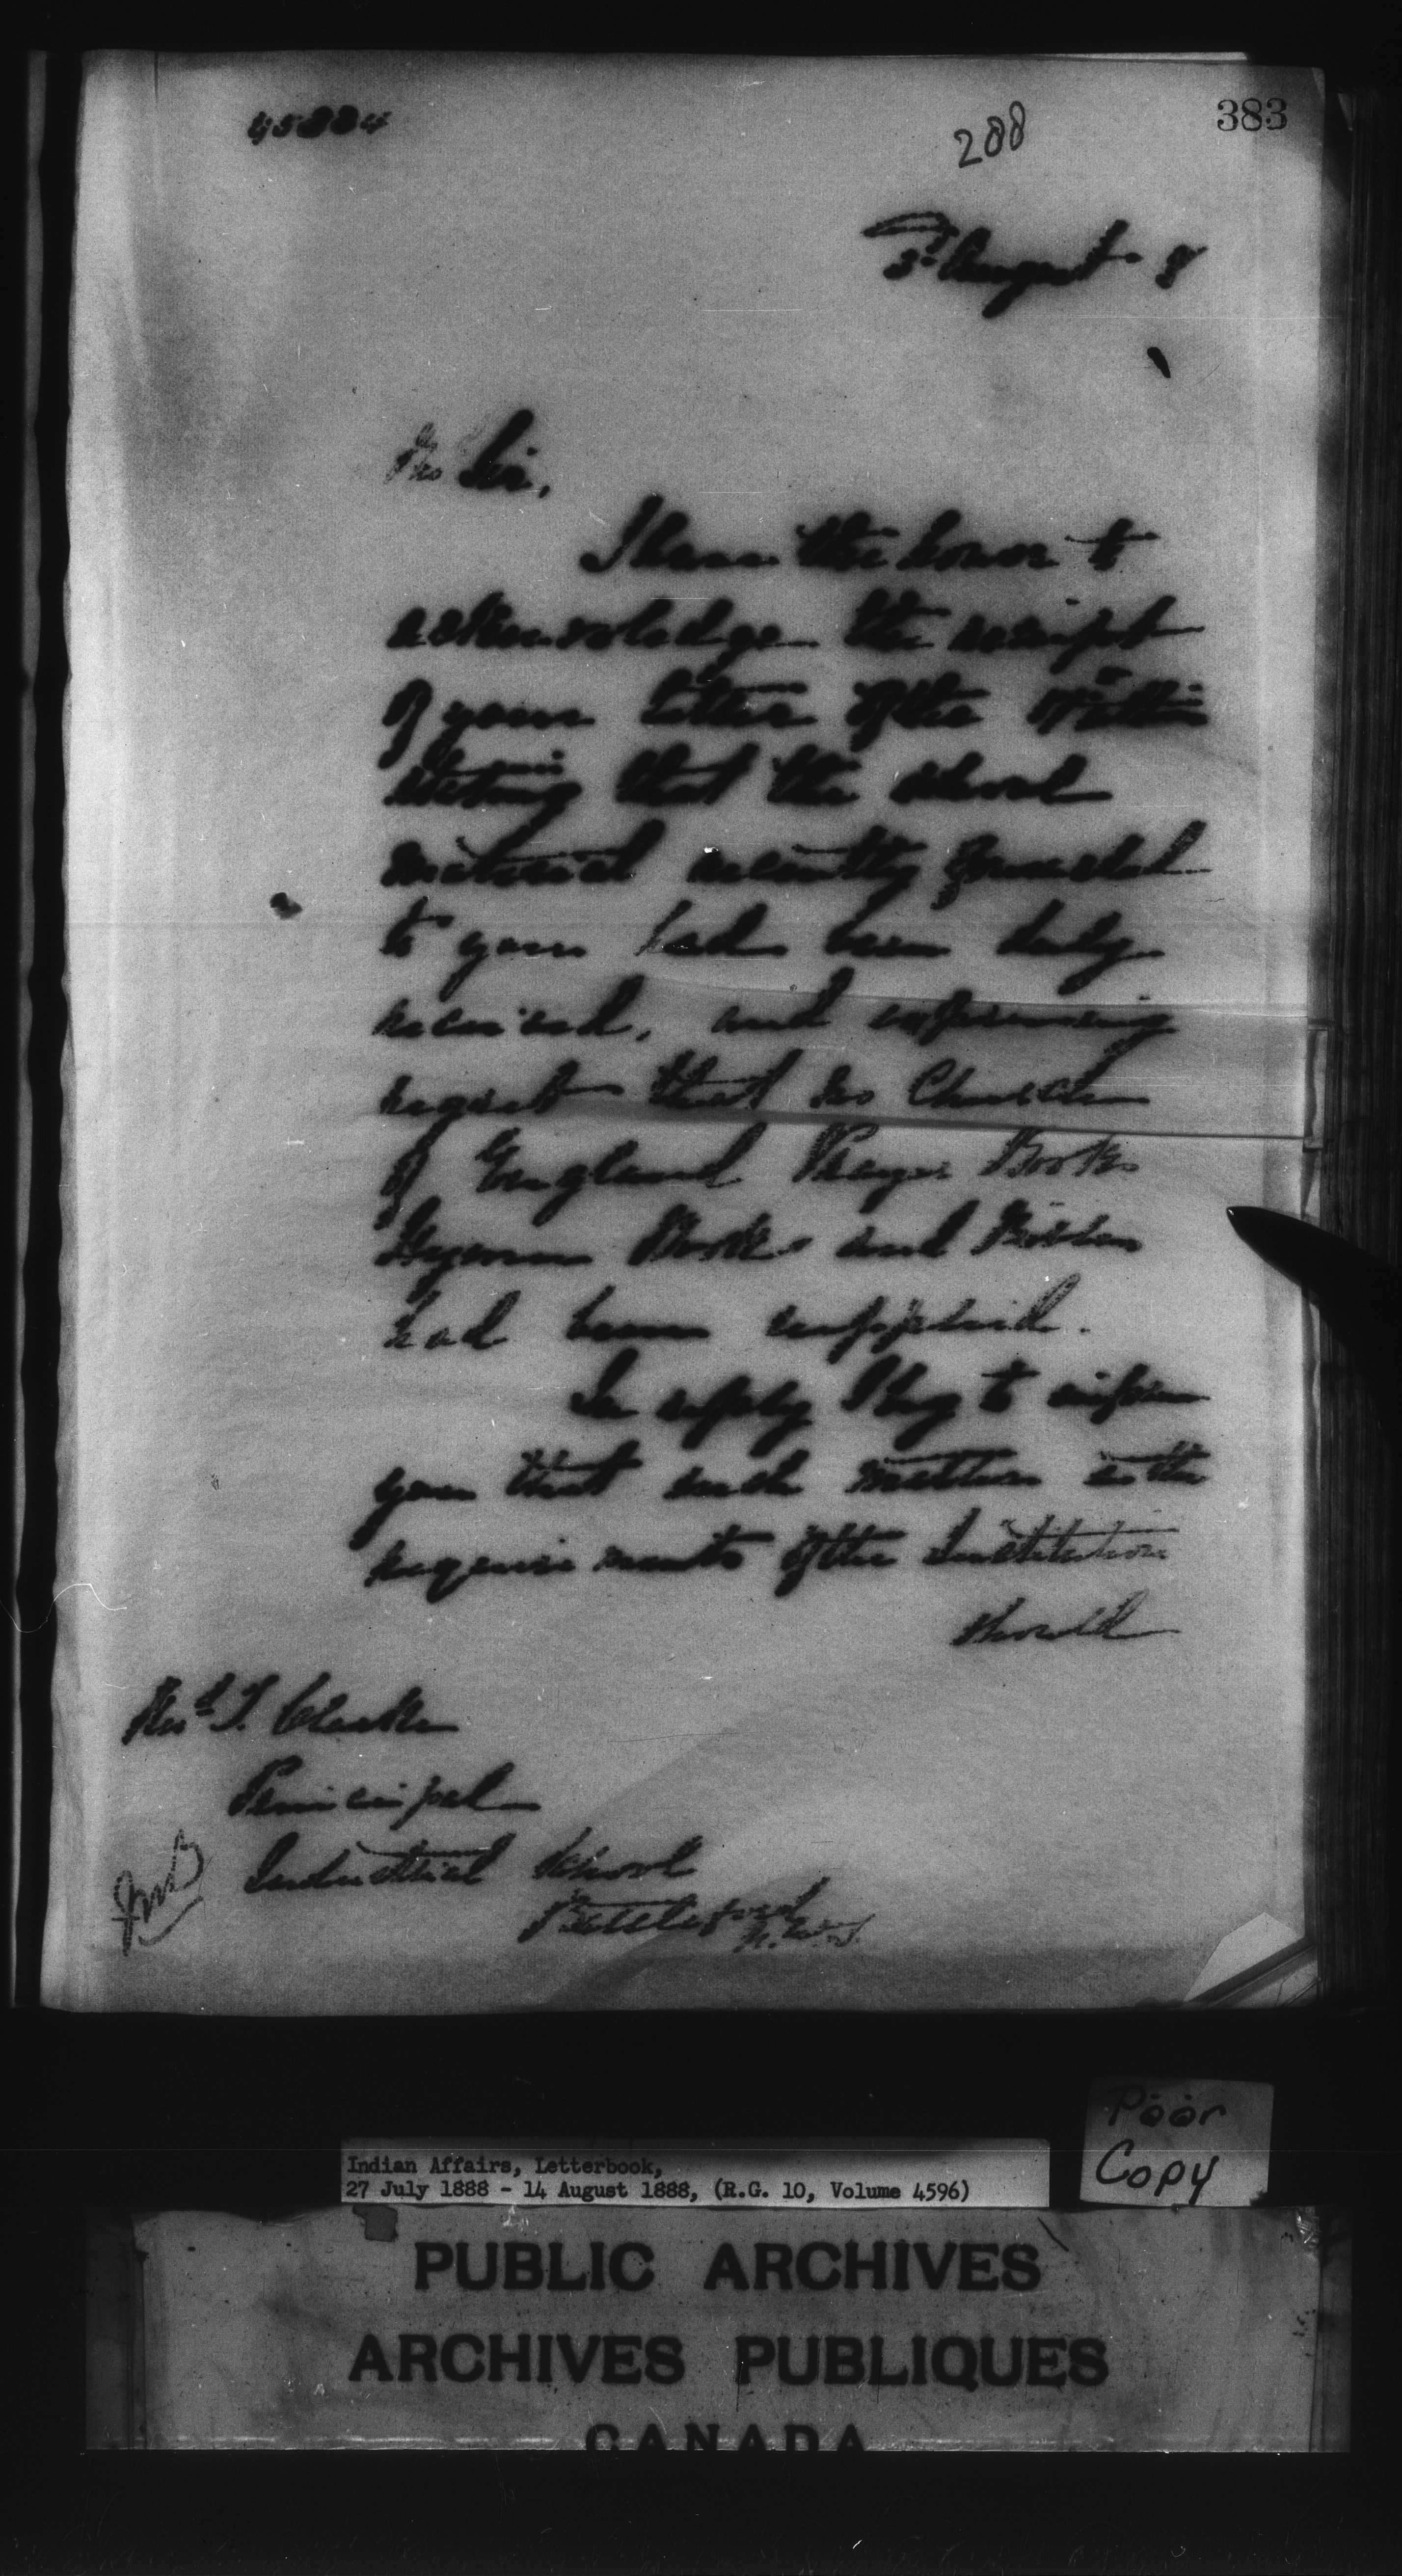 45884
288
383
3d August 8
Sir,
I have the honor to
acknowledge the receipt
of your letter of the
stating that the school
material recently forwarded
to you had been duly
received, and expressing
regret that no Church
of England Prayer Books
Hymn Books and Bibles
had been supplied.
In reply I beg to inform
you that such matters as the
requirements of the Institution
should
Revd T. Clarke
Principal
Industrial School
Battleford
N.W.T.
Poor
Copy
Indian Affairs, Letterbook,
27 July 1888 - 14 August 1888, (R.G. 10, Volume 4596)
PUBLIC ARCHIVES
ARCHIVES PUBLIQUES
CANADA